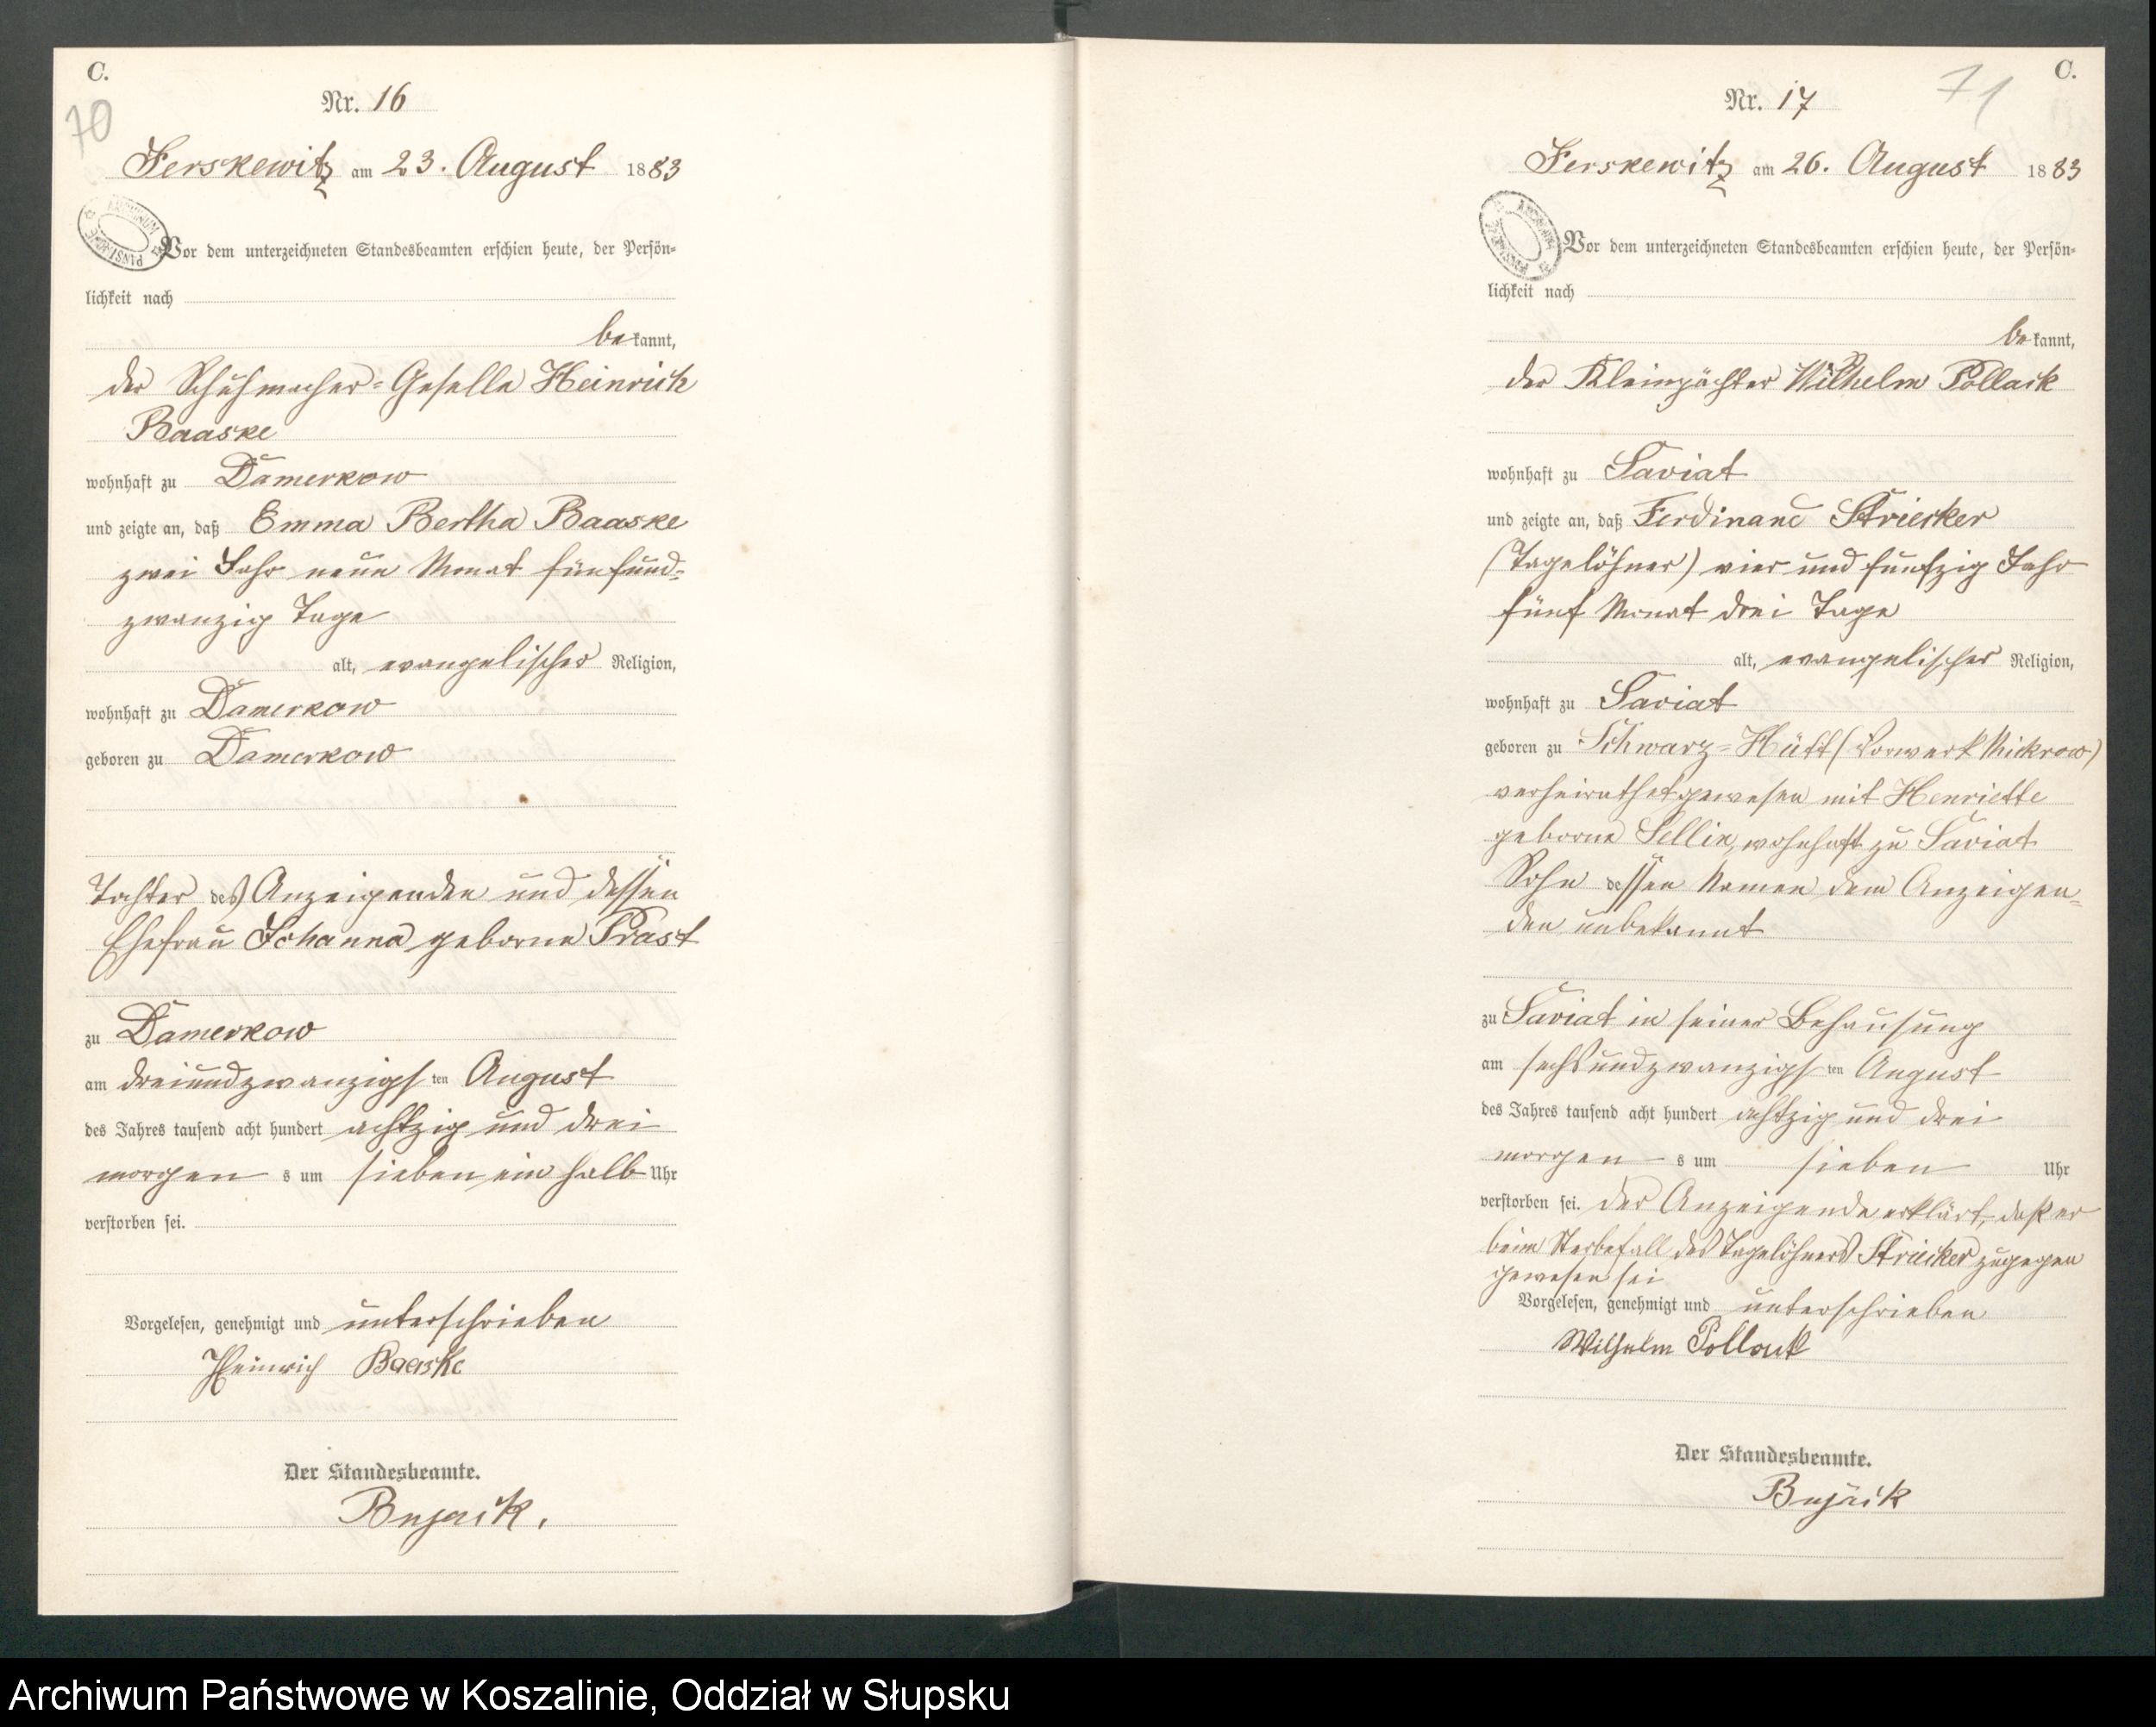 C.
70
Nr. 16
Jerskewitz am 23. August 1883
Vor dem unterzeichneten Standesbeamten erschien heute, der Persön-
lichkeit nach
bekannt,
der Schuhmacher-Geselle Heinrich
Baaske
wohnhaft zu Damerkow
und zeigte an, daß Emma Bertha Baaske
zwei Jahr neun Monat fünfund-
zwanzig Tage
alt, evangelischer Religion,
wohnhaft zu Damerkow
geboren zu Damerkow
Tochter des Anzeigenden und dessen
Ehefrau Johanna geborne Prast
zu Damerkow
am dreiundzwanzigsten August
des Jahres tausend acht hundert achtzig und drei
morgens um sieben ein halb Uhr
verstorben sei.
Vorgelesen, genehmigt und unterschrieben
Heinrich Baaske
Der Standesbeamte.
Bujack.
C.
71
Nr. 17
Jerskewitz am 26. August 1883
Vor dem unterzeichneten Standesbeamten erschien heute, der Persön-
lichkeit nach
bekannt,
der Kleinpächter Wilhelm Pollack
wohnhaft zu Saviat
und zeigte an, daß Ferdinand Striecker
(Tagelöhner) vier und funfzig Jahr
fünf Monat drei Tage
alt, evangelischer Religion,
wohnhaft zu Saviat
geboren zu Schwarz-Hütt (Vorwerk Mickrow)
verheirathet gewesen mit Henriette
geborne Sellin, wohnhaft zu Saviat
Sohn dessen Namen dem Anzeigen-
den unbekannt
zu Saviat in seiner Behausung
am sechsundzwanzigsten August
des Jahres tausend acht hundert achtzig und drei
morgens um sieben Uhr
verstorben sei. Der Anzeigende erklärt, daß er
beim Sterbefall des Tagelöhners Striecker zugegen
gewesen sei
Vorgelesen, genehmigt und unterschrieben
Wilhelm Pollack
Der Standesbeamte.
Bujack
Archiwum Państwowe w Koszalinie, Oddział w Słupsku